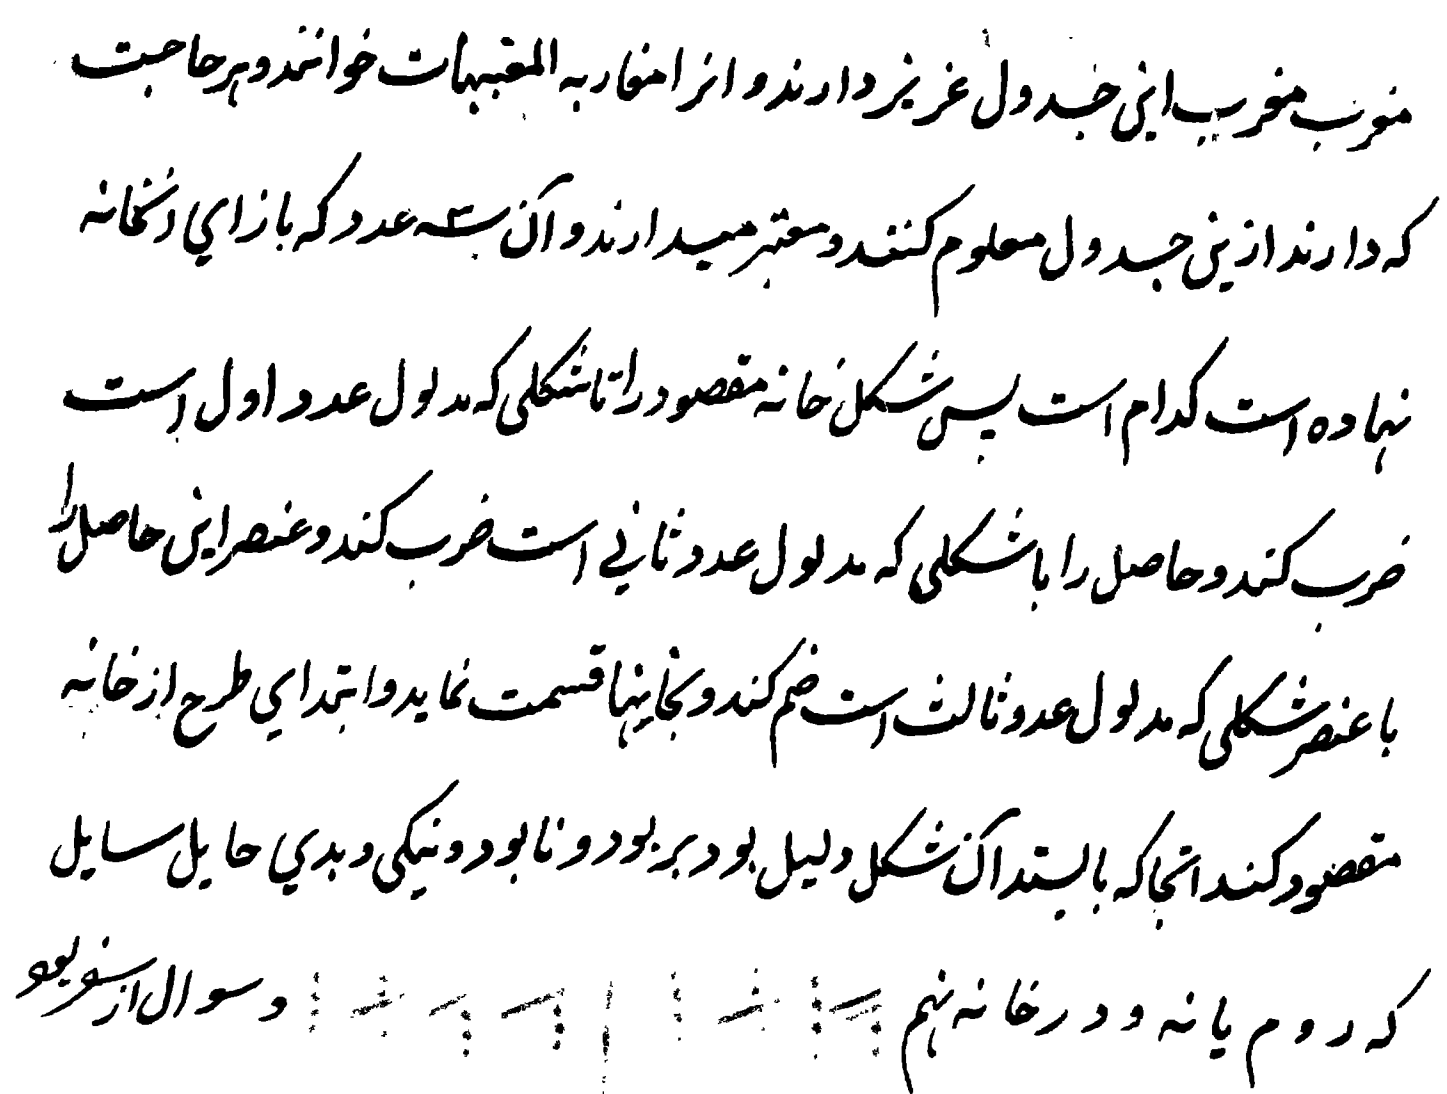 مغرب مغرب این جدول عزیز دارند و انرا مغاربه المغیبات خوانند و هر حاجت
که دارند ازین جدول معلوم کنند و معتبر میدارند و آن سه عدد که بازاي انخانه
نهاده است کدام است پس شکل خانه مقصود را تا شکلی که مدلول عدد اول است
ضرب کند و حاصل را با شکلی که مدلول عدد ثاني است ضرب کند و عنصر این حاصل را
با عنصر شکلی که مدلول عدد ثالث است ضم کند و بخاینها قسمت نماید و ابتداي طرح از خانه
مقصود کند انجا که بایستد آن شکل دلیل بود بر بود و نابود و نیکی و بدي حایل سایل
که روم یا نه و در خانه نهم و سوال از سفر بود